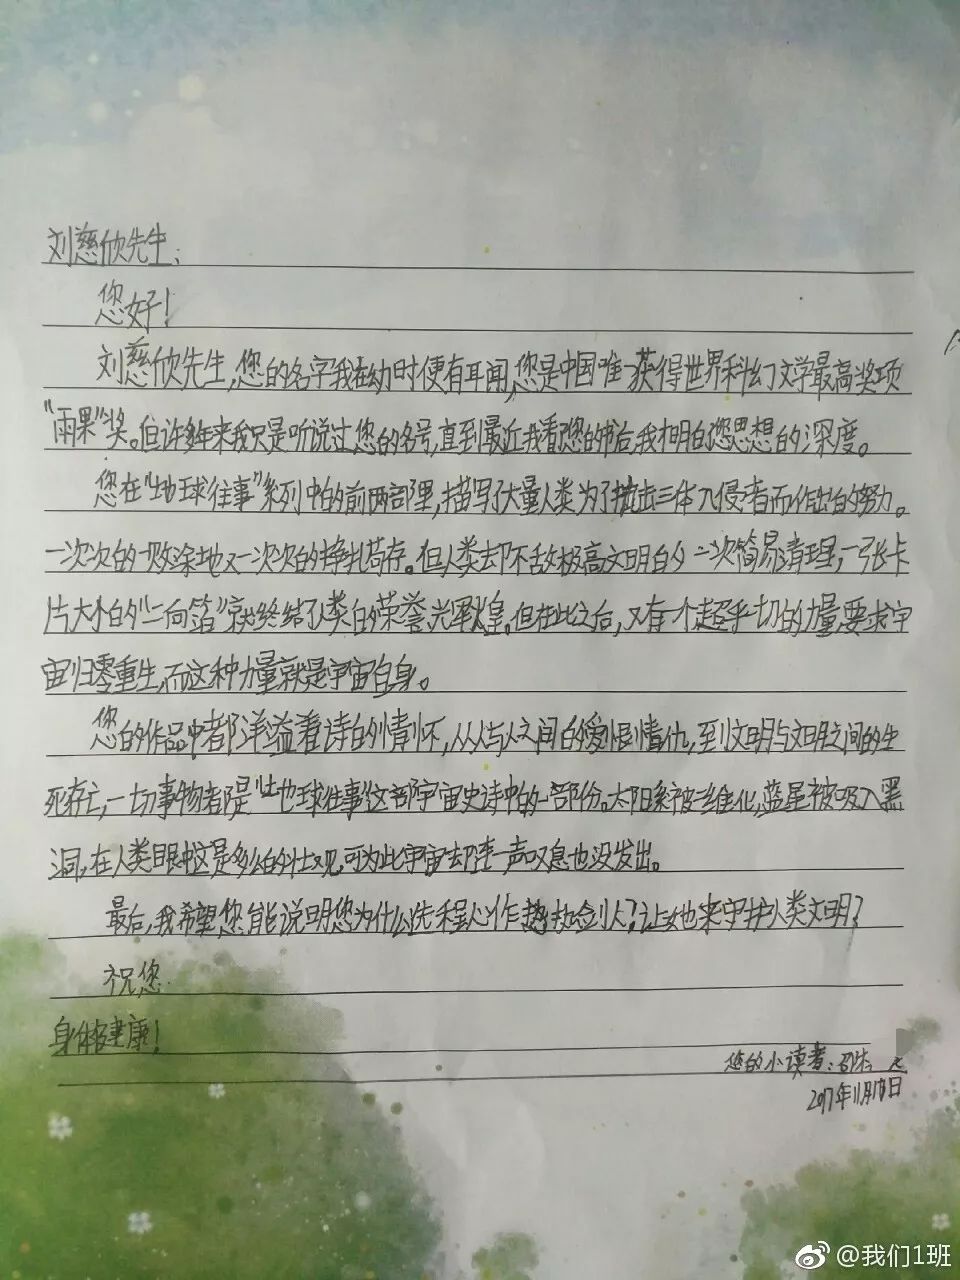 刘慈欣先生:
您好!
刘慈欣先生,您的名字我在幼时便有耳闻,您是中国唯一获得世界科幻文学最高奖项
“雨果”奖。但许多年来我只是听说过您的名号,直到最近我看您的书后,我才明白您思想的深度。
您在“地球往事”系列中的前两部里,描写了大量人类为了抗击三体入侵者而作出的努力。
一次次的一败涂地又一次次的挣扎苟存。但人类却不敌极高文明的一次简易清理,一张卡
片大小的“二向箔”就终结了人类的荣誉光辉煌。但在此之后,又有一个超乎一切的力量要求宇
宙归零重生,而这种力量就是宇宙自身。
您的作品中都洋溢着诗的情怀,从人与人之间的爱恨情仇,到文明与文明之间的生
死存亡,一切事物都是“地球往事”这部宇宙史诗中的一部份。太阳系被二维化,蓝星被吸入黑
洞,在人类眼中这是多么的壮观,可为此宇宙却连一声叹息也没发出。
最后,我希望您能说明您为什么选程心作为执剑人?让她来守护人类文明?
祝您
身体健康!
您的小读者:
2017年11月18日
@我们1班